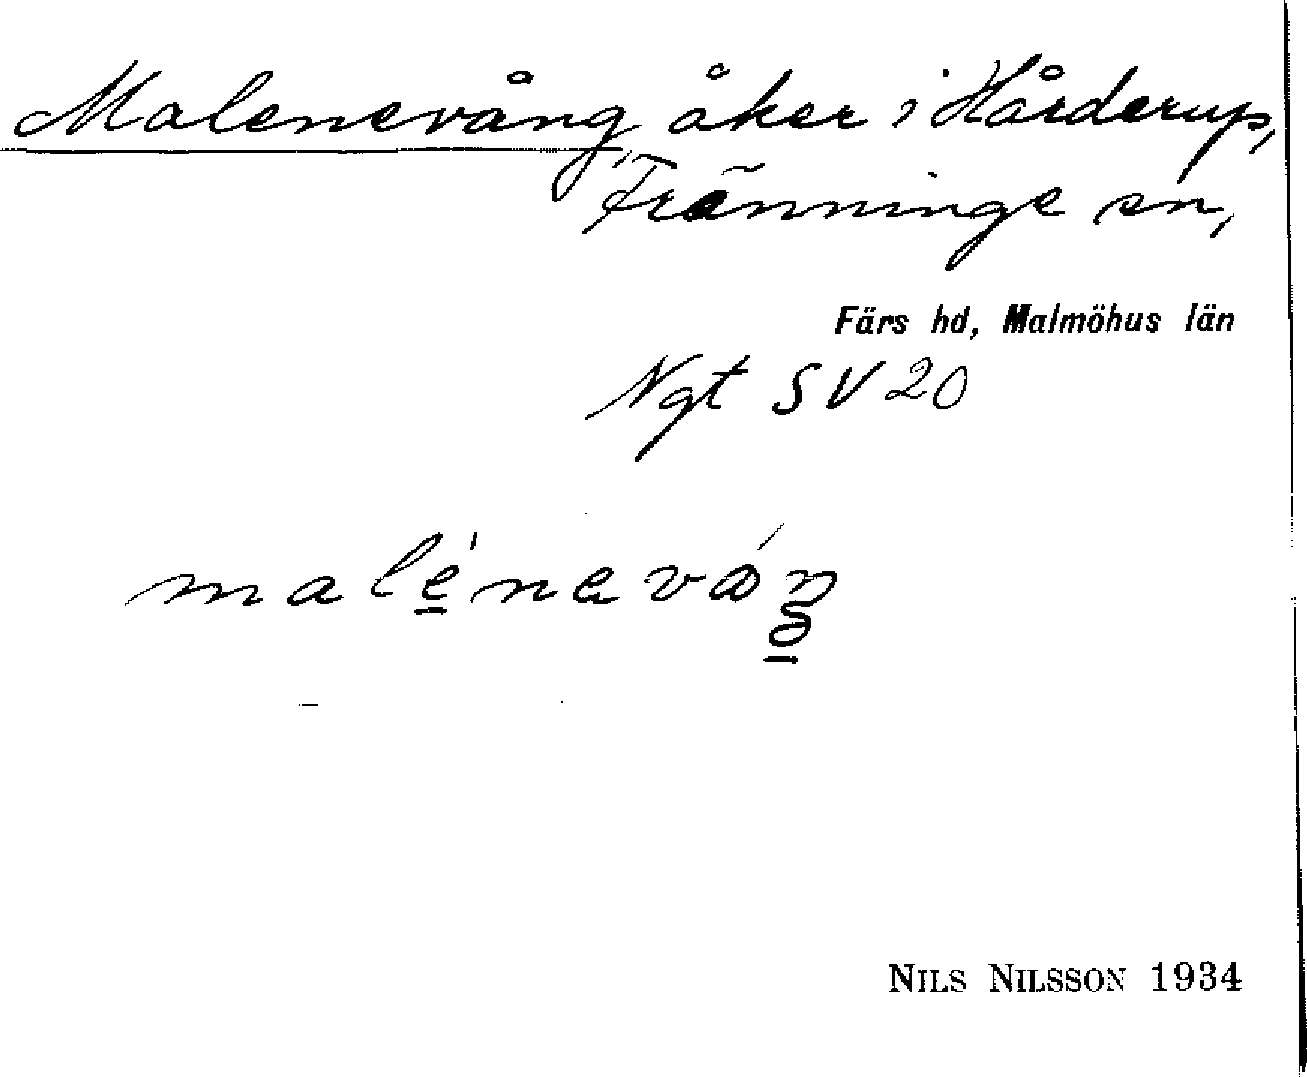 Malenevång åker i Hårderup,
Fränninge sn,
Färs hd, Malmöhus län
Ngt SV 20
malénaváŋ
NILS NILSSON 1934